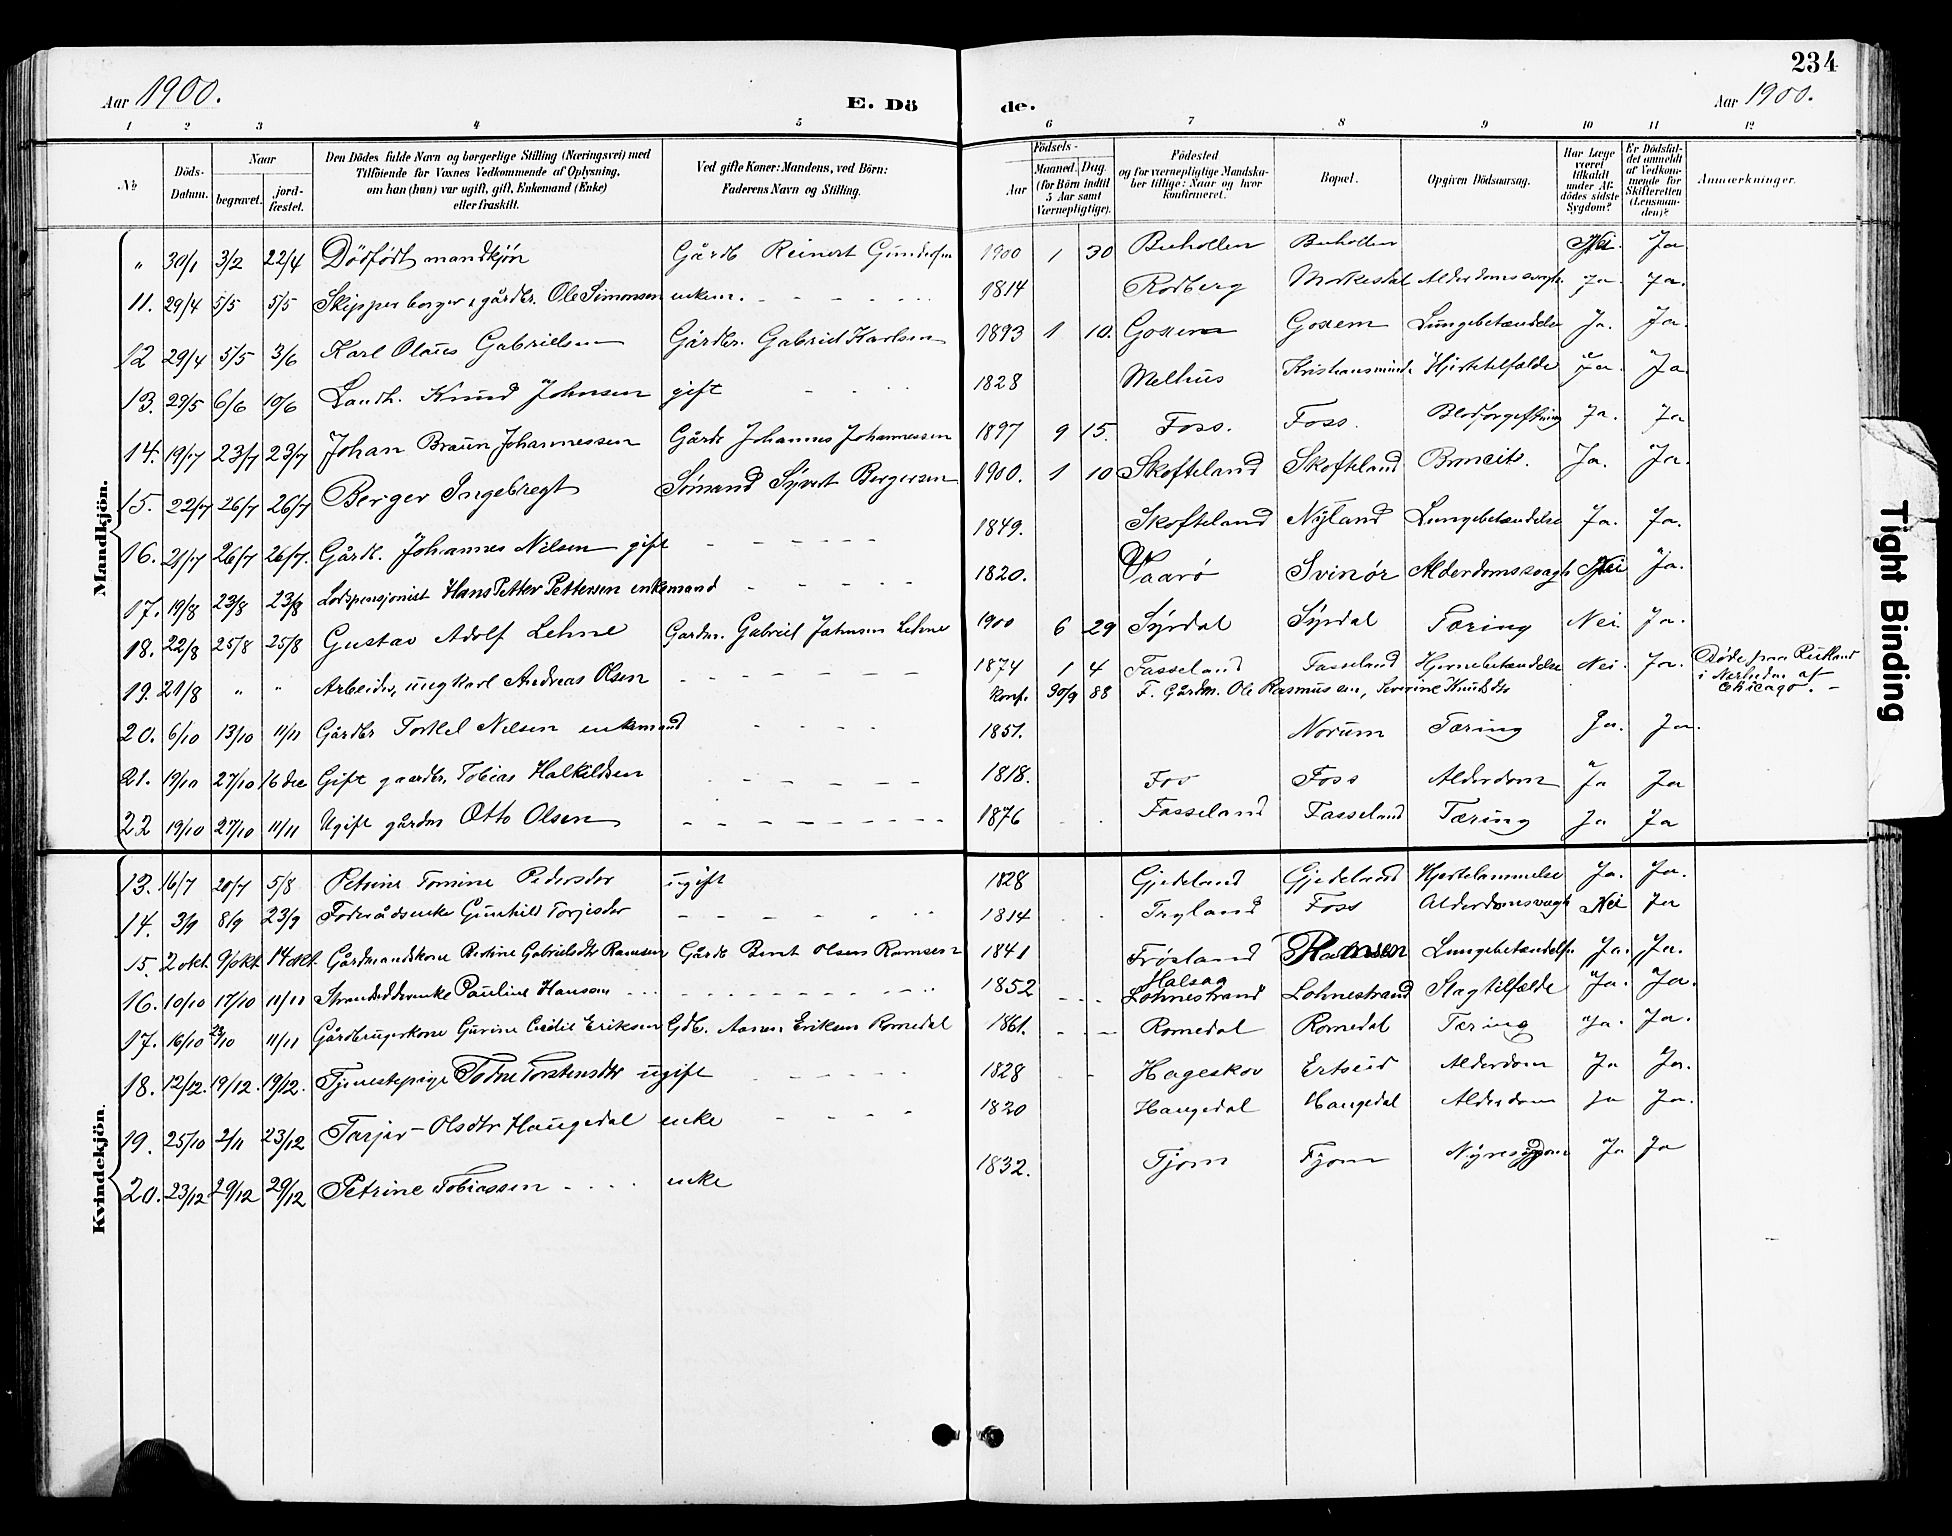 234
Aar 1900.
E. Dö
de.
Aar 1900.
1 2 3 4 5 6 7 8 9 10 11 12
No
Döds-Datum.
Naar
begravet.
jord-fæstet.
Den Dödes fulde Navn og borgerlige Stilling (Næringsvei) med
Tilföiende for Voxnes Vedkommende af Oplysning,
om han (hun) var ugift, gift, Enkemand (Enke)
eller fraskilt.
Ved gifte Koner: Mandens, ved Börn:
Faderens Navn og Stilling.
Födsels-
Aar
Maaned. Dag
(for Börn indtil
5 Aar samt
Værnepligtige).
Födested
og for værnepligtige Mandska-
ber tillige: Naar og hvor
konfirmeret.
Bopæl.
Opgiven Dödsaarsag.
Har Læge
været
tilkaldt
under Af-
dödes sidste
Sygdom?
Er Dödsfal-
det anmeldt
af Vedkom-
mende for
Skifteretten
(Lensman-
den)?
Anmærkninger.
Mandkjön.
" 30/1 3/2 22/4 Dödfödt mandkjön Gårdb Reinert Gundersen 1900 1 30 Buhollen Buhollen Nei. Ja
11. 29/4 5/5 5/5 Skipper borger & gårdbr. Ole Simonsen enkem. 1814 Rodberg Alderdomssvagh. Ja Ja.
12 29/4 5/5 3/6 Karl Olaus Gabrielsen Gårdbr. Gabriel Karlsen 1893 1 10. Goxem Goxem Lungebetændelse Ja. Ja.
13. 29/5 6/6 10/6 Landh. Knud Johnsen gift 1828 Melhus Kristiansminde Hjertetilfælde Ja. Ja
14. 19/7 23/7 23/7 Johan Braun Johannessen Gårdb Johannes Johannessen 1897 9 15. Foss. Foss. Blodforgiftning Ja. Ja
15. 22/7 26/7 26/7 Berger Ingebregt Sömand Syvert Bergersen 1900. 1 10 Skofteland Skofteland Ja. Ja.
16. 21/7 26/7 26/7. Gårdb. Johannes Nilsen gift 1849. Skofteland Nyland Lungebetændelse Ja. Ja.
17. 19/8 23/8 23/8 Lodspensjonist Hans Petter Pettersen enkemand 1820. Vaarö Svinör Alderdomssvagh Nei Ja.
18. 22/8 25/8 25/8 Gustav Adolf Lehne Gardm. Gabriel Johnsen Lehne 1900 6 29 Syrdal Syrdal Tæring Nei. Ja.
19. 21/8 " " Arbeider, ungkarl Andreas Olsen 1874 1 4 Fasseland Fasseland Hjernebetændelse Nei. Ja. Døde paa
konf. 30/9 88 F. Gårdm. Ole Rasmussen, Severine Knudsdtr i Nærheden af
Chicago. –
20. 6/10 13/10 11/11 Gårdbr Torkel Nilsen enkemand 1851. Norum Tæring Ja. Ja.
21. 19/10 27/10 16 dec Gift gaardbr. Tobias Halkildsen 1818. Fos Foss Alderdom Ja Ja
22 19/10 27/10 11/11 Ugift gårdm Otto Olsen 1876 Fasseland Fasseland Tæring Ja Ja
Kvindekjön.
13. 16/7 20/7 5/8 Petrine Tomine Pedersdtr ugift 1828 Gjedeland Gjedeland Hjertelammelse Ja. Ja.
14. 3/9 8/9 23/9 Föderådsenke Gunhild Torjesdtr 1814 Tryland Foss Alderdomsvagh Nei Ja
15. 2 okt 9/okt 14 okt. Gårdmandskone Bertine Gabrielsdtr Ramsen Gårdb Bernt Olsen Ramsen 1841 Frösland Ramsen Lungebetændelse Ja. Ja.
16. 10/10 17/10 11/11 Pauline Hansen 1852 Halsaa Lohnestrand Lohnestrand Slagtilfælde Ja. Ja.
17. 16/10 23/10 11/11 Gårdbrugerkone Gurine Cecilie Eriksen Gdb. Eriksen Romedal 1861. Romedal Romedal Tæring Ja. Ja.
18. 12/12. 19/12. 19/12. Tjenestepige Todne Torstensdtr ugift 1828 Hageskov Ertsüd Alderdom Ja Ja.
19. 25/10 2/11 23/12 Tarjer – Olsdtr Haugedal enke 1820 Haugedal Haugedal Alderdom Ja Ja.
20. 23/12 29/12 29/12 Petrine Tobiassen enke 1832. Tjom Tjom Nyresygdom Ja Ja
Tight Binding